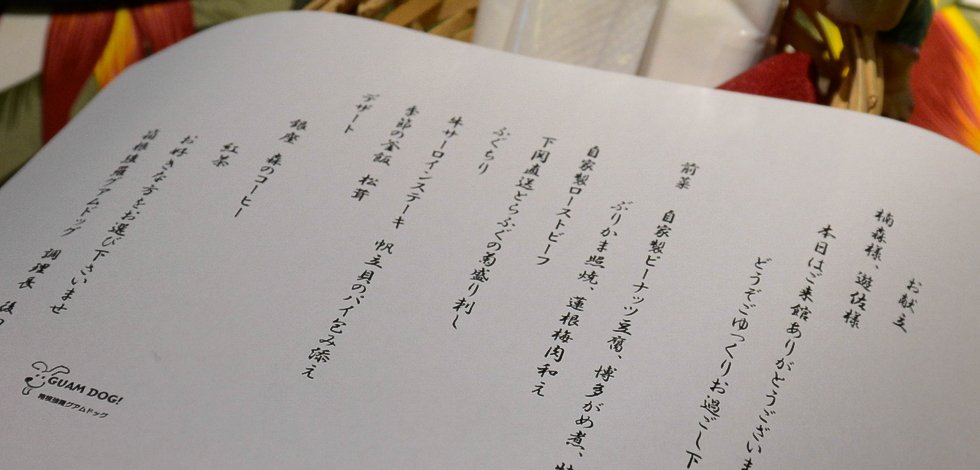 お献立
楠森様、遊佐様
本日はご来館ありがとうございま
どうぞごゆっくりお過ごし下
前菜 自家製ピーナッツ豆腐、博多がめ煮、
ぶりかま照焼、蓮根梅肉和え
自家製ローストビーフ
下関直送とらふぐの菊盛り刺し
ふぐちり
牛サーロインステーキ 帆立貝のパイ包み添え
季節の釜飯 松茸
デザート
銀座 森のコーヒー
紅茶
お好きな方をお選び下さいませ
箱根強羅グアムドッグ 調理長
GUAM DOG!
箱根強羅グアムドッグ